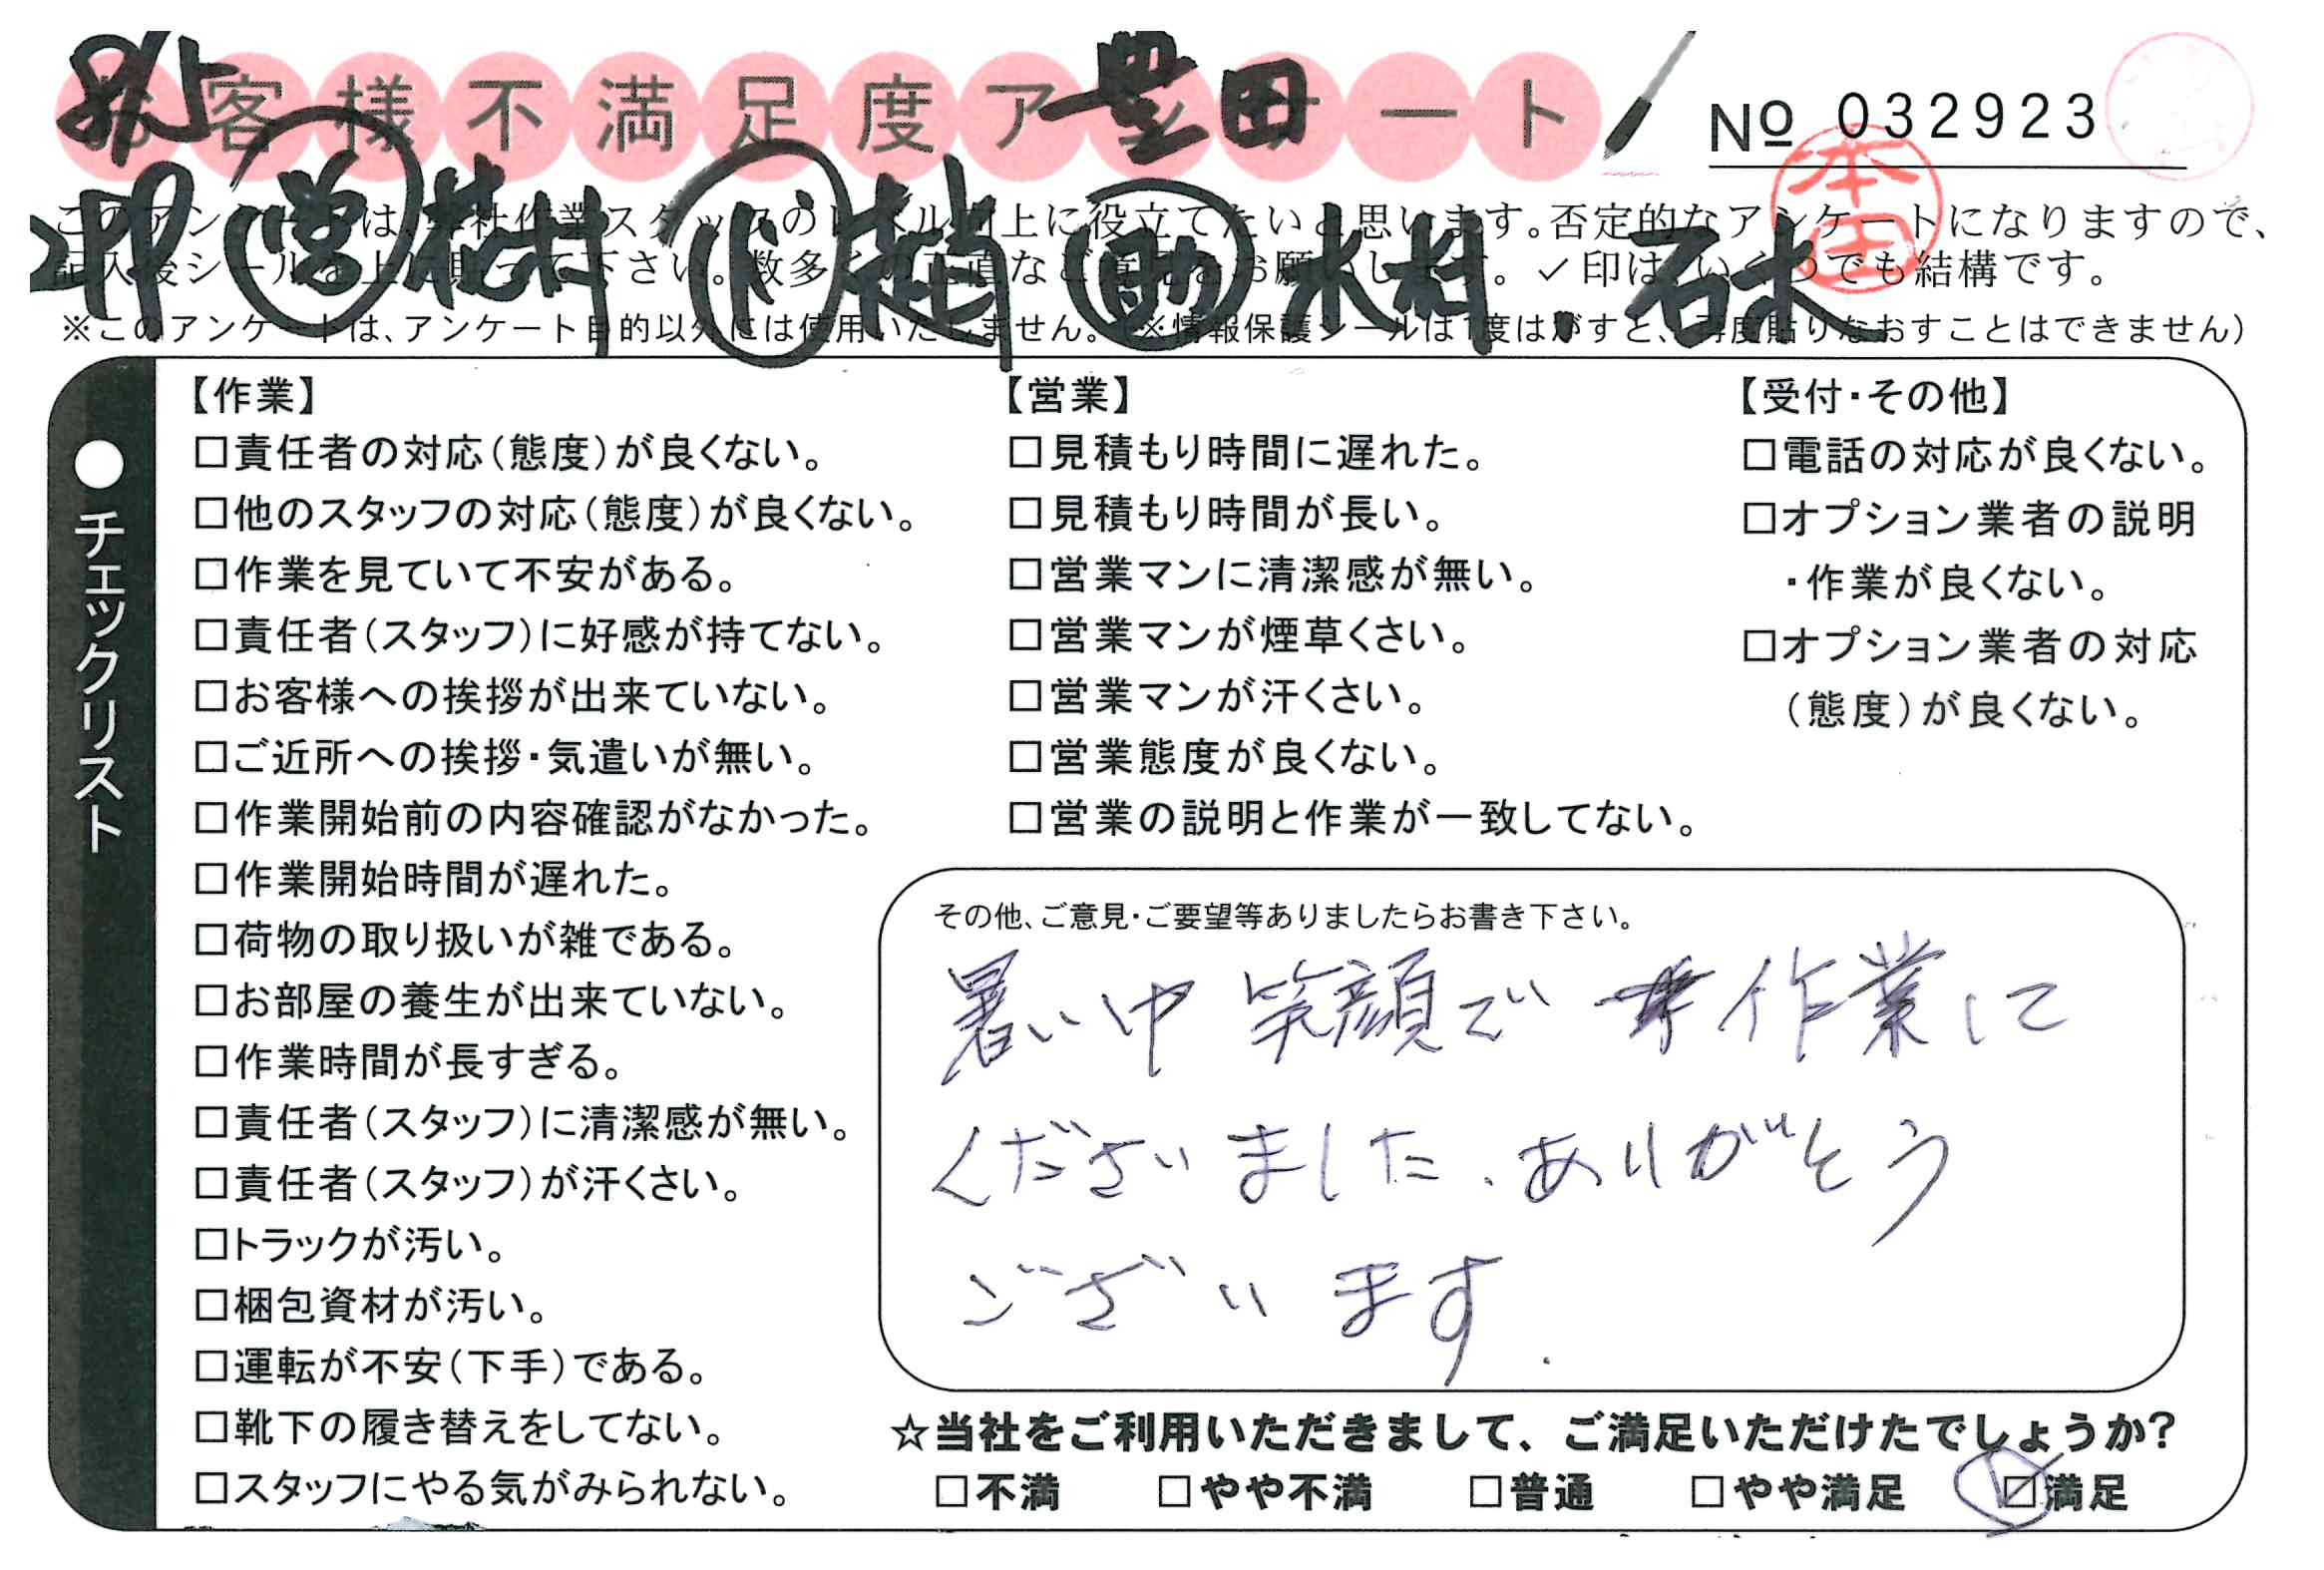 お客様不満足度アンケート
8/5 豊田
№ 032923
本田
2P 営 花村 ド 梢 助 水村 . 石木
このアンケートは、弊社作業スタッフのレベル向上に役立てたいと思います。否定的なアンケートになりますので、
記入後シールを上に貼って下さい。数多くの正直なご意見をお願いします。✓印はいくつでも結構です。
※このアンケートは、アンケート目的以外には使用いたしません。（※情報保護シールは1度はがすと、再度貼りなおすことはできません）
●チェックリスト
【作業】
□責任者の対応（態度）が良くない。
□他のスタッフの対応（態度）が良くない。
□作業を見ていて不安がある。
□責任者（スタッフ）に好感が持てない。
□お客様への挨拶が出来ていない。
□ご近所への挨拶・気遣いが無い。
□作業開始前の内容確認がなかった。
□作業開始時間が遅れた。
□荷物の取り扱いが雑である。
□お部屋の養生が出来ていない。
□作業時間が長すぎる。
□責任者（スタッフ）に清潔感が無い。
□責任者（スタッフ）が汗くさい。
□トラックが汚い。
□梱包資材が汚い。
□運転が不安（下手）である。
□靴下の履き替えをしてない。
□スタッフにやる気がみられない。
【営業】
□見積もり時間に遅れた。
□見積もり時間が長い。
□営業マンに清潔感が無い。
□営業マンが煙草くさい。
□営業マンが汗くさい。
□営業態度が良くない。
□営業の説明と作業が一致してない。
【受付・その他】
□電話の対応が良くない。
□オプション業者の説明
・作業が良くない。
□オプション業者の対応
（態度）が良くない。
その他、ご意見・ご要望等ありましたらお書き下さい。
暑い中 笑顔で 作業して
くださいました、ありがとう
ございます.
☆当社をご利用いただきまして、ご満足いただけたでしょうか?
□不満 □やや不満 □普通 □やや満足 ☑満足